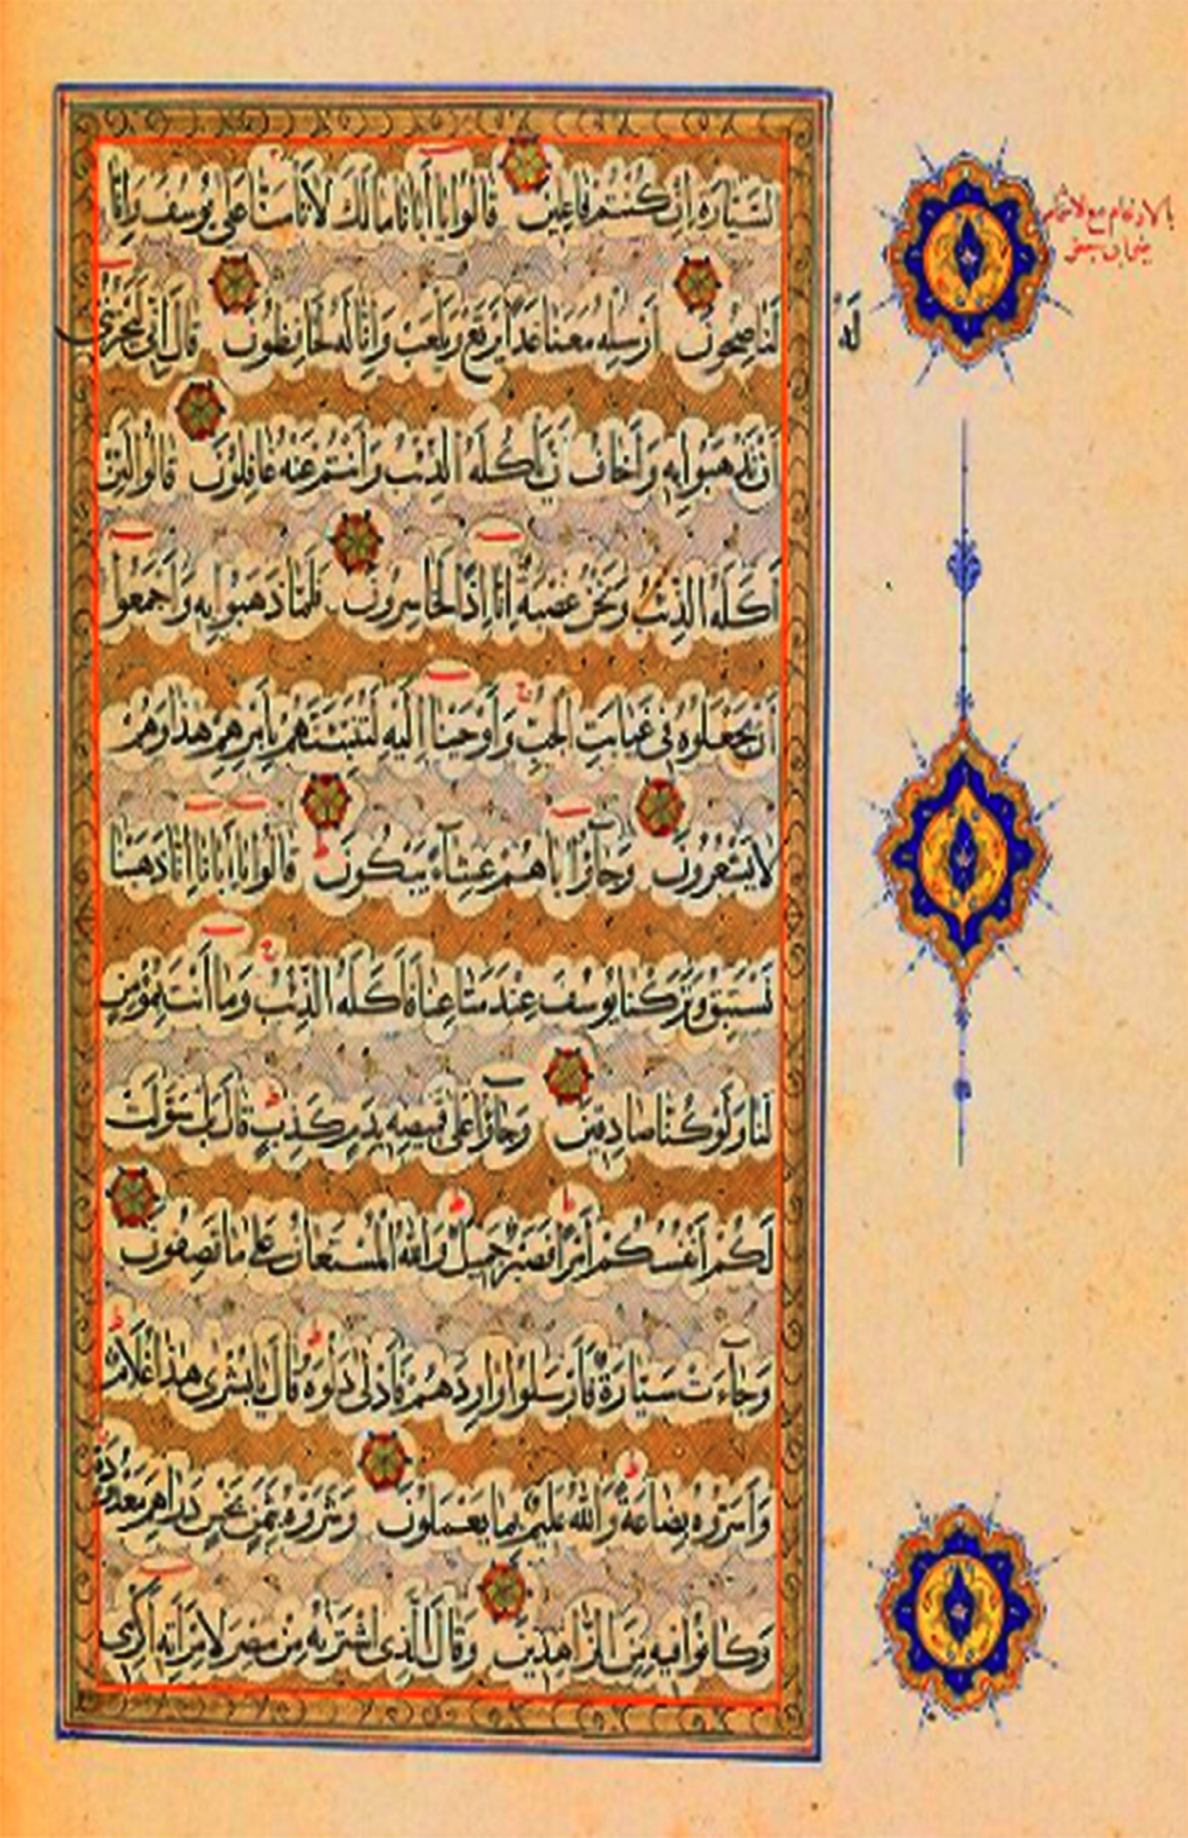 السَّيَّارَةِ إِنْ كُنْتُمْ فَاعِلِينَ قَالُوا يَا أَبَانَا مَا لَكَ لَا تَأْمَنَّا عَلَى يُوسُفَ وَإِنَّا
بالادغام مع الاشمام
لَهُ
لَنَاصِحُونَ أَرْسِلْهُ مَعَنَا غَدًا يَرْتَعْ وَيَلْعَبْ وَإِنَّا لَهُ لَحَافِظُونَ قَالَ إِنِّي لَيَحْزُنُنِي
أَنْ تَذْهَبُوا بِهِ وَأَخَافُ أَنْ يَأْكُلَهُ الذِّئْبُ وَأَنْتُمْ عَنْهُ غَافِلُونَ قَالُوا لَئِنْ
أَكَلَهُ الذِّئْبُ وَنَحْنُ عُصْبَةٌ إِنَّا إِذًا لَخَاسِرُونَ فَلَمَّا ذَهَبُوا بِهِ وَأَجْمَعُوا
أَنْ يَجْعَلُوهُ فِي غَيَابَتِ الْجُبِّ وَأَوْحَيْنَا إِلَيْهِ لَتُنَبِّئَنَّهُمْ بِأَمْرِهِمْ هَذَا وَهُمْ
لَا يَشْعُرُونَ وَجَآؤُا أَبَاهُمْ عِشَآءً يَبْكُونَ قَالُوا يَا أَبَانَا إِنَّا ذَهَبْنَا
نَسْتَبِقُ وَتَرَكْنَا يُوسُفَ عِنْدَ مَتَاعِنَا فَأَكَلَهُ الذِّئْبُ وَمَا أَنْتَ بِمُؤْمِنٍ
لَنَا وَلَوْ كُنَّا صَادِقِينَ وَجَاؤُا عَلَى قَمِيصِهِ بِدَمٍ كَذِبٍ قَالَ بَلْ سَوَّلَتْ
لَكُمْ أَنْفُسُكُمْ أَمْرًا فَصَبْرٌ جَمِيلٌ وَاللَّهُ الْمُسْتَعَانُ عَلَى مَا تَصِفُونَ
وَجَآءَتْ سَيَّارَةٌ فَأَرْسَلُوا وَارِدَهُمْ فَأَدْلَى دَلْوَهُ قَالَ يَا بُشْرَى هَذَا غُلَامٌ
وَأَسَرُّوهُ بِضَاعَةً وَاللَّهُ عَلِيمٌ بِمَا يَعْمَلُونَ وَشَرَوْهُ بِثَمَنٍ بَخْسٍ دَرَاهِمَ مَعْدُودَةٍ
وَكَانُوا فِيهِ مِنَ الزَّاهِدِينَ وَقَالَ الَّذِي اشْتَرَيهُ مِنْ مِصْرَ لِامْرَأَتِهِ أَكْرِمِي